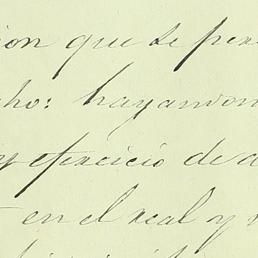 ion que se per
cho: hayamon
y ejercicio de a
en el real y